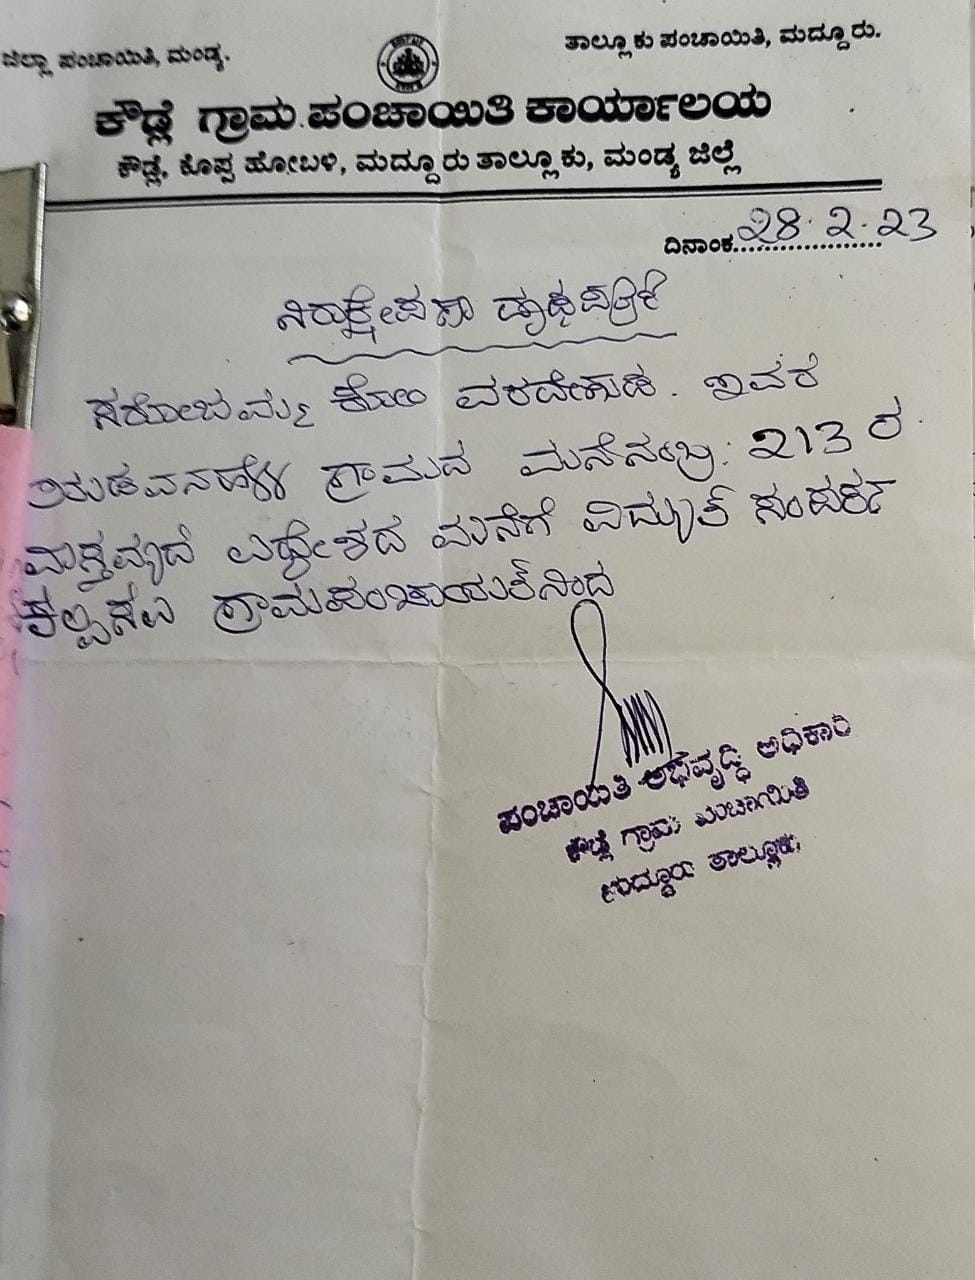 ಜಿಲ್ಲಾ ಪಂಚಾಯಿತಿ, ಮಂಡ್ಯ.
ತಾಲ್ಲೂಕು ಪಂಚಾಯಿತಿ, ಮದ್ದೂರು.
ಕೌಡ್ಲೆ ಗ್ರಾಮ ಪಂಚಾಯಿತಿ ಕಾರ್ಯಾಲಯ
ಕೌಡ್ಲೆ, ಕೊಪ್ಪ ಹೋಬಳಿ, ಮದ್ದೂರು ತಾಲ್ಲೂಕು, ಮಂಡ್ಯ ಜಿಲ್ಲೆ
ದಿನಾಂಕ 28.2.23
ನಿರಾಕ್ಷೇಪಣಾ ದೃಢಪತ್ರಿಕೆ
ಸರೋಜಮ್ಮ ಕೋಂ ವರದೇಗೌಡ. ಇವರ
ಗ್ರಾಮದ ಮನೆನಂಬ್ರ: 213 ರ
ವಾಸ್ತವ್ಯದ ಉದ್ದೇಶದ ಮನೆಗೆ ವಿದ್ಯುತ್ ಸಂಪರ್ಕ
ಕಲ್ಪಿಸಲು ಗ್ರಾಮಪಂಚಾಯತ್‌ನಿಂದ
ಪಂಚಾಯಿತಿ ಅಭಿವೃದ್ಧಿ ಅಧಿಕಾರಿ
ಕೌಡ್ಲೆ ಗ್ರಾಮ ಪಂಚಾಯಿತಿ
ಮದ್ದೂರು ತಾಲ್ಲೂಕು.